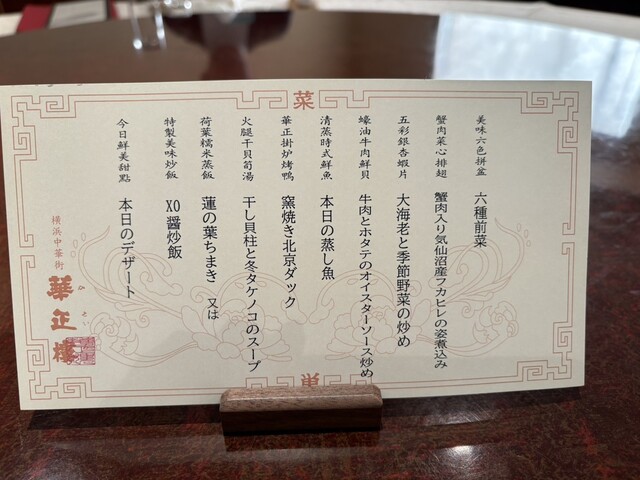 菜
美味六色拼盆
六種前菜
蟹肉菜心排翅
蟹肉入り気仙沼産フカヒレの姿煮込み
五彩銀杏蝦片
大海老と季節野菜の炒め
蠔油牛肉鮮貝
牛肉とホタテのオイスターソース炒め
清蒸時式鮮魚
本日の蒸し魚
華正掛炉烤鴨
窯焼き北京ダック
火腿干貝筍湯
干し貝柱と冬タケノコのスープ
荷葉糯米蒸飯
蓮の葉ちまき 又は
特製美味炒飯
XO醤炒飯
今日鮮美甜點
本日のデザート
横浜中華街
華正樓